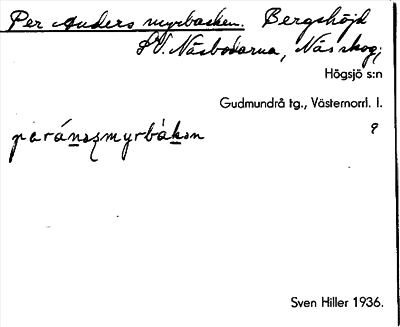 Per Anders myrbacken. Bergshöjd
SV. Näsbodarna, Näs skog;
Högsjö s:n
Gudmundrå tg., Västernorrl. l.
päránəsmyrbákən
Sven Hiller 1936.